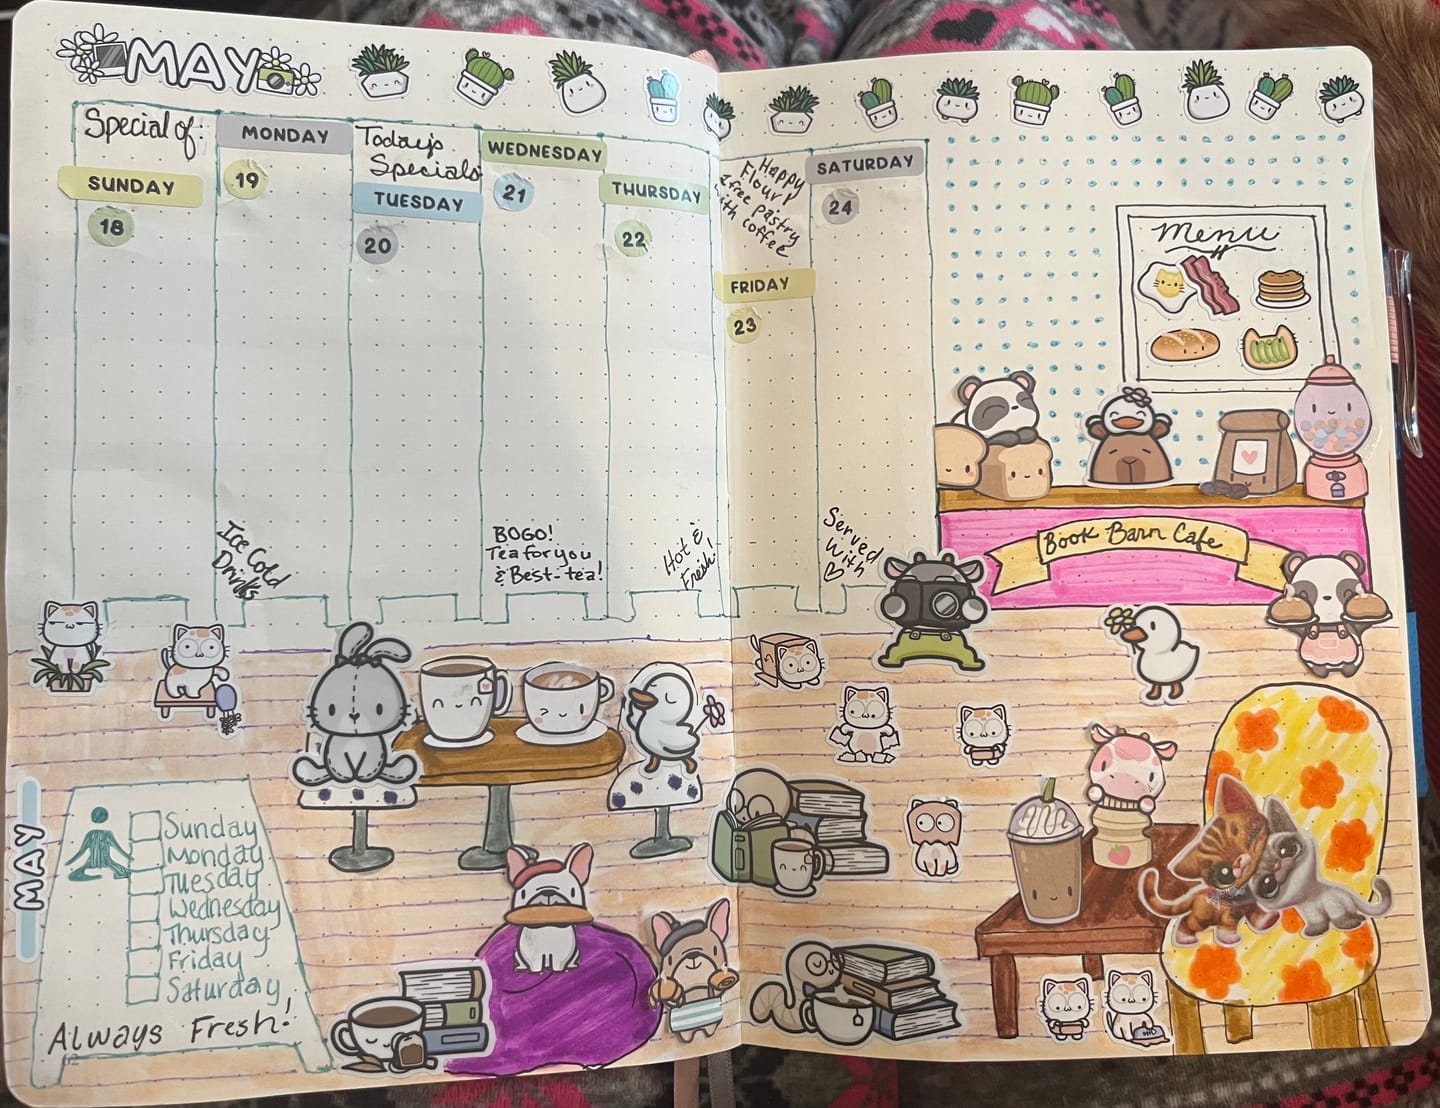 MAY
Special of:
SUNDAY
18
MONDAY
19
Today's
Specials
TUESDAY
20
WEDNESDAY
21
THURSDAY
22
Happy
Flour!
1 free pastry
with coffee
FRIDAY
23
SATURDAY
24
Menu
Ice Cold
Drinks
BOGO!
Tea for you
& Best-tea!
Hot &
Fresh!
Served
With
Book Barn Cafe
MAY
Sunday
Monday
Tuesday
Wednesday
Thursday
Friday
Saturday
Always Fresh!